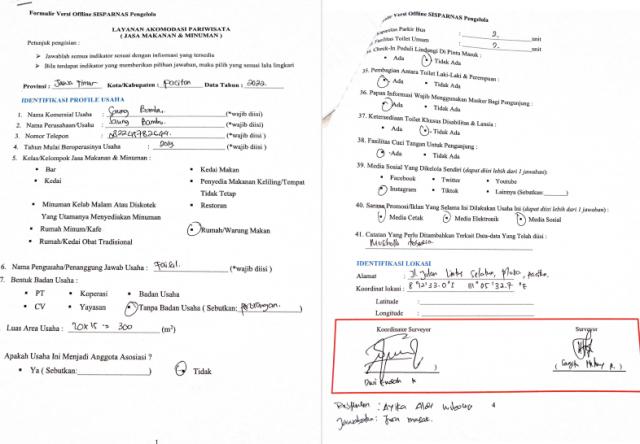 Formulir Versi Offline SISPARNAS Pengelola
LAYANAN AKOMODASI PARIWISATA
( JASA MAKANAN & MINUMAN )
Petunjuk pengisian :
Jawablah semua indikator sesuai dengan informasi yang tersedia
Bila terdapat indikator yang memberikan pilihan jawaban, maka pilih yang sesuai lalu lingkari
Provinsi : Jawa Timur Kota/Kabupaten : Pacitan Data Tahun : 2022
IDENTIFIKASI PROFILE USAHA
1. Nama Komersial Usaha : Saung Bambu. (*wajib diisi)
2. Nama Perusahaan/Usaha : Saung Bambu. (*wajib diisi)
3. Nomor Telepon : (*wajib diisi )
4. Tahun Mulai Beroperasinya Usaha : (*wajib diisi )
5. Kelas/Kelompok Jasa Makanan & Minuman :
Bar
Kedai
Minuman Kelab Malam Atau Diskotek
Yang Utamanya Menyediakan Minuman
Rumah Minum/Kafe
Rumah/Kedai Obat Tradisional
Kedai Makan
Penyedia Makanan Keliling/Tempat
Tidak Tetap
Restoran
Rumah/Warung Makan
6. Nama Pengusaha/Penanggung Jawab Usaha : (*wajib diisi )
7. Bentuk Badan Usaha :
PT Koperasi Badan Usaha
CV Yayasan Tanpa Badan Usaha ( Sebutkan: Perorangan. )
Luas Area Usaha : 20 x 15 = 300 (m²)
Apakah Usaha Ini Menjadi Anggota Asosiasi ?
Ya ( Sebutkan: ) Tidak
1
Versi Offline SISPARNAS Pengelola
Kapasitas Parkir Bus : 2. unit
Fasilitas Toilet Umum : 2. unit
Check-In Peduli Lindungi Di Pintu Masuk :
Ada Tidak Ada
35. Pembagian Antara Toilet Laki-Laki & Perempuan :
Ada Tidak Ada
36. Papan Informasi Wajib Menggunakan Masker Bagi Pengunjung :
Ada Tidak Ada
37. Ketersediaan Toilet Khusus Disabilitas & Lansia :
Ada Tidak Ada
38. Fasilitas Cuci Tangan Untuk Pengunjung :
Ada Tidak Ada
39. Media Sosial Yang Dikelola Sendiri (dapat diisi lebih dari 1 jawaban):
Facebook Twitter Youtube
Instagram Tiktok Lainnya (Sebutkan: )
40. Sarana Promosi/Iklan Yang Selama Ini Dilakukan Usaha Ini (dapat diisi lebih dari 1 jawaban) :
Media Cetak Media Elektronik Media Sosial
41. Catatan Yang Perlu Ditambahkan Terkait Data-data Yang Telah diisi :
Musholla tersedia
IDENTIFIKASI LOKASI
Alamat : Jl. Jalan Lintas Selatan, Ploso, Pacitan.
Koordinat lokasi : 8°12'33.0"S 111°05'32.7"E
Latitude :
Longitude :
Koordinator Surveyor
Surveyor
4